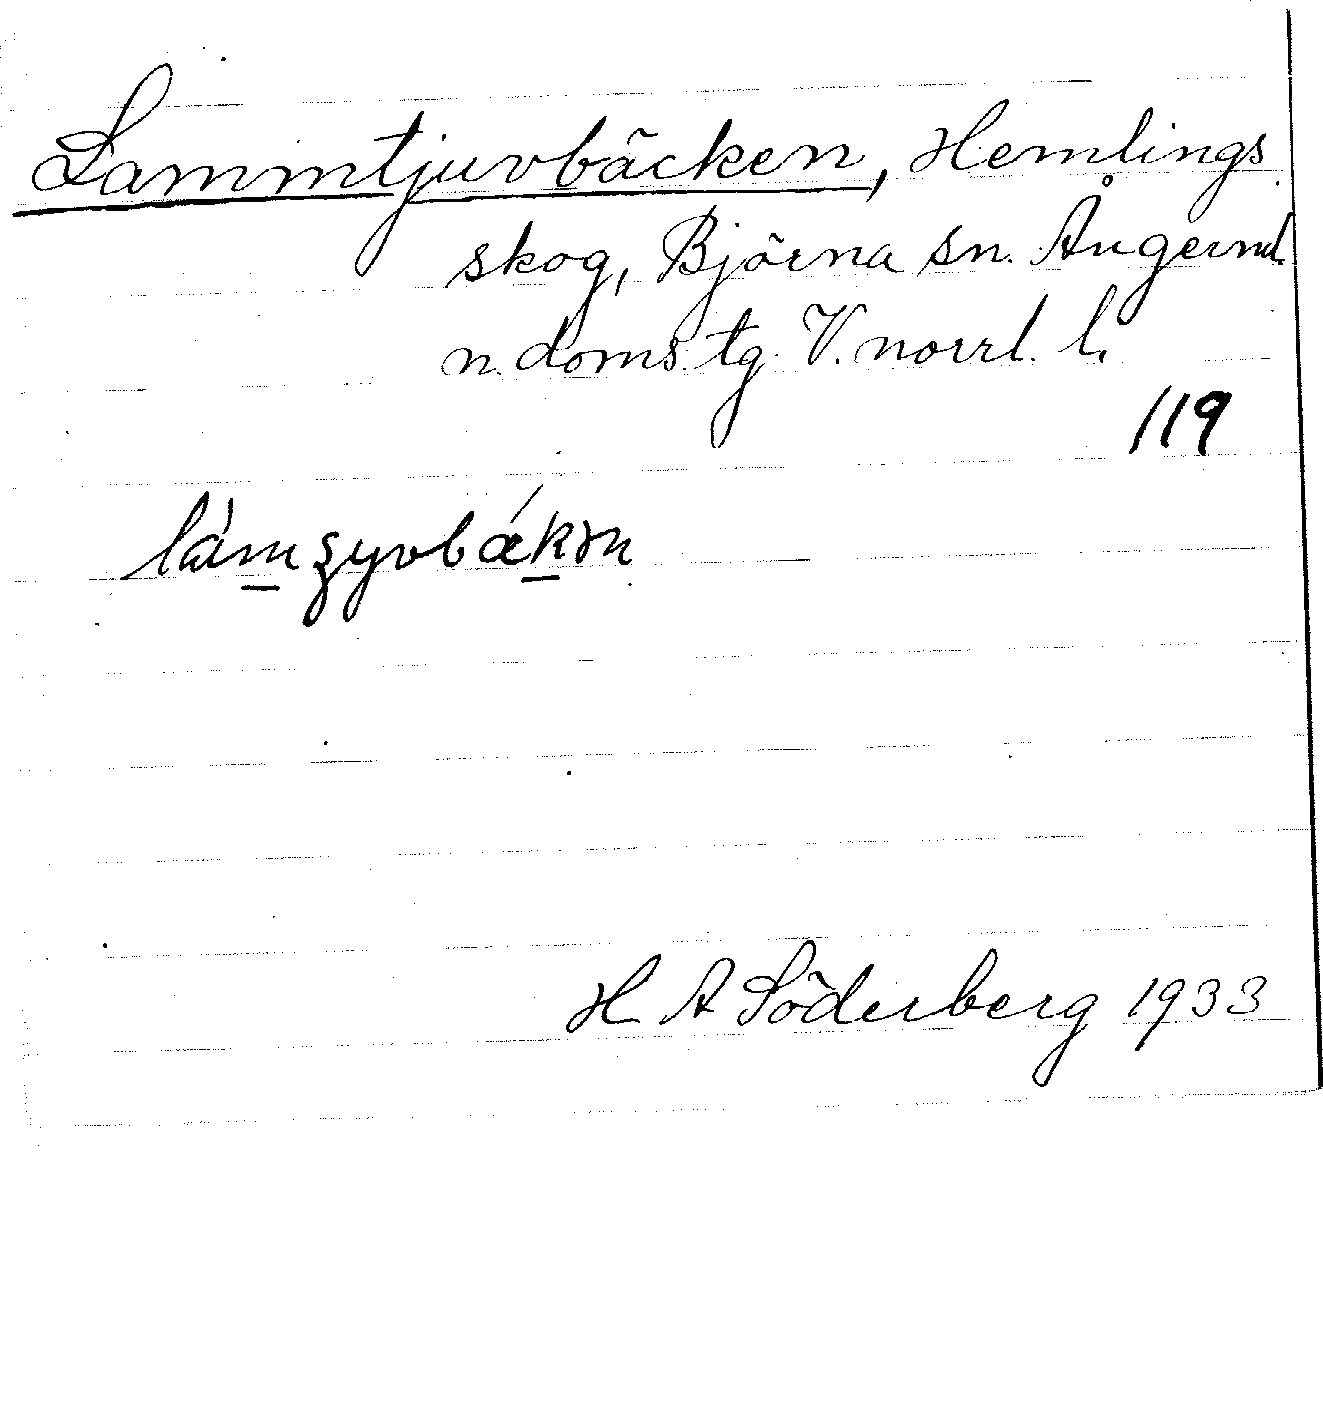 Lammtjuvbäcken, Hemlings
skog, Björna sn. Ångerml.
n. doms. tg. V. norrl. l.
119
H A Söderberg 1933